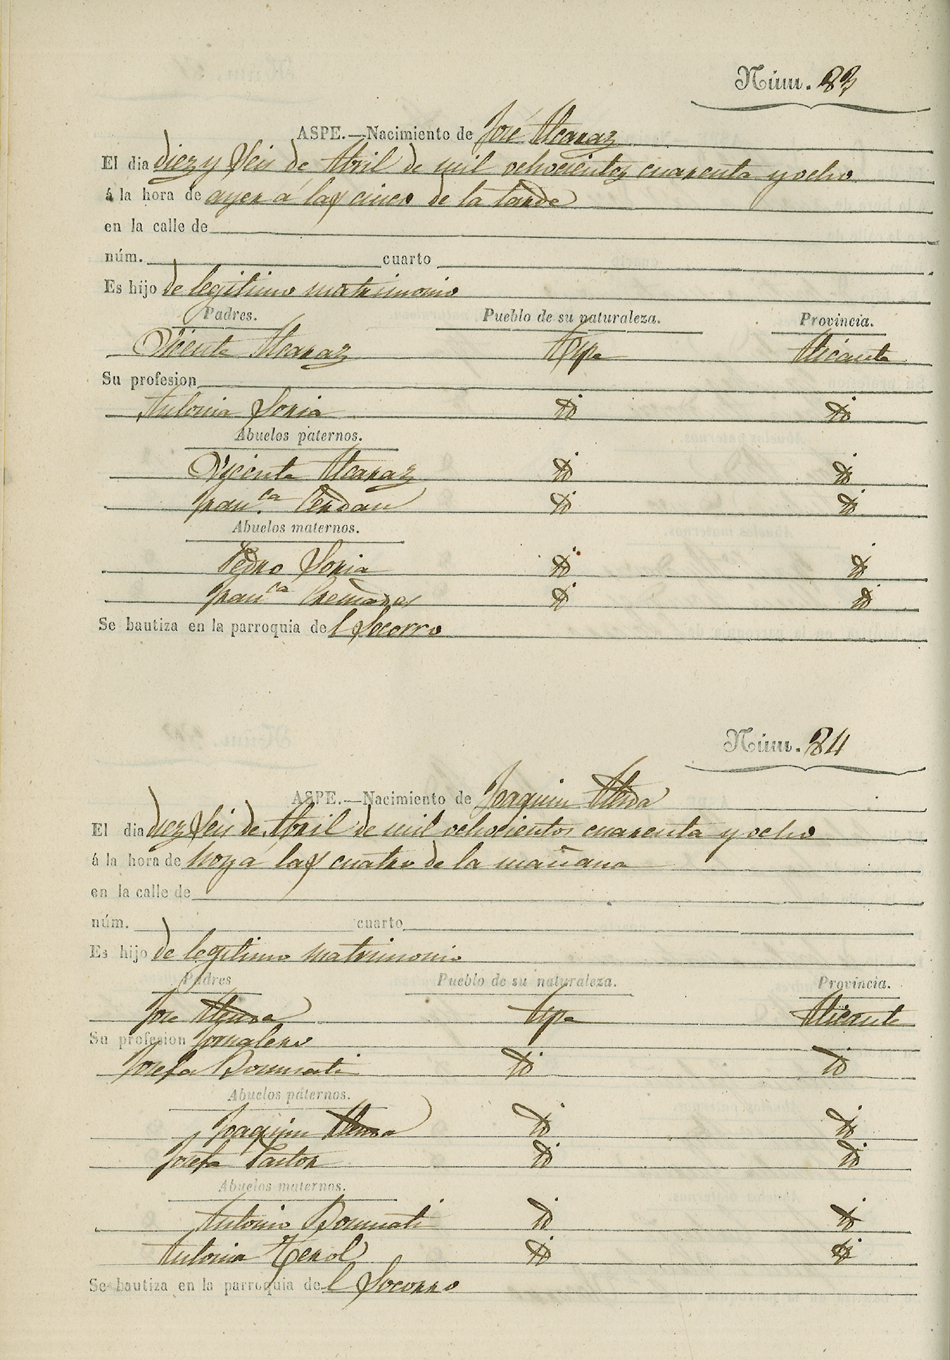 Núm. 83
ASPE.—Nacimiento de José Alcaraz
El dia diez y seis de Abril de mil ochocientos cuarenta y ocho
á la hora de ayer á las cinco de la tarde
en la calle de
núm. cuarto
Es hijo de legitimo matrimonio
Padres. Pueblo de su naturaleza. Provincia.
Vicente Alcaraz Aspe Alicante
Su profesion
Antonia Soria id id
Abuelos paternos.
Vicente Alcaraz id id
Fran.ca Cerdan id id
Abuelos maternos.
Pedro Soria id id
Fran.ca id id
Se bautiza en la parroquia del Socorro
Núm. 84
ASPE.—Nacimiento de Joaquin
El dia diez seis de Abril de mil ochocientos cuarenta y ocho
á la hora de hoy a las cuatro de la mañana
en la calle de
núm. cuarto
Es hijo de legitimo matrimonio
Padres Pueblo de su naturaleza. Provincia.
Jose Aspe Alicante
Su profesion Jornalero
Josefa Bonmati id id
Abuelos paternos.
Joaquin id id
Josefa Pastor id id
Abuelos maternos.
Antonio Bonmati id id
Antonia Terol id id
Se bautiza en la parroquia del Socorro